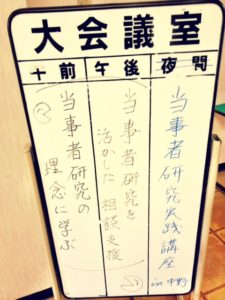 大会議室
午前
午後
夜間
当事者研究の
理念に学ぶ
当事者研究を
活かした 相談支援
当事者研究実践講座
in 中野